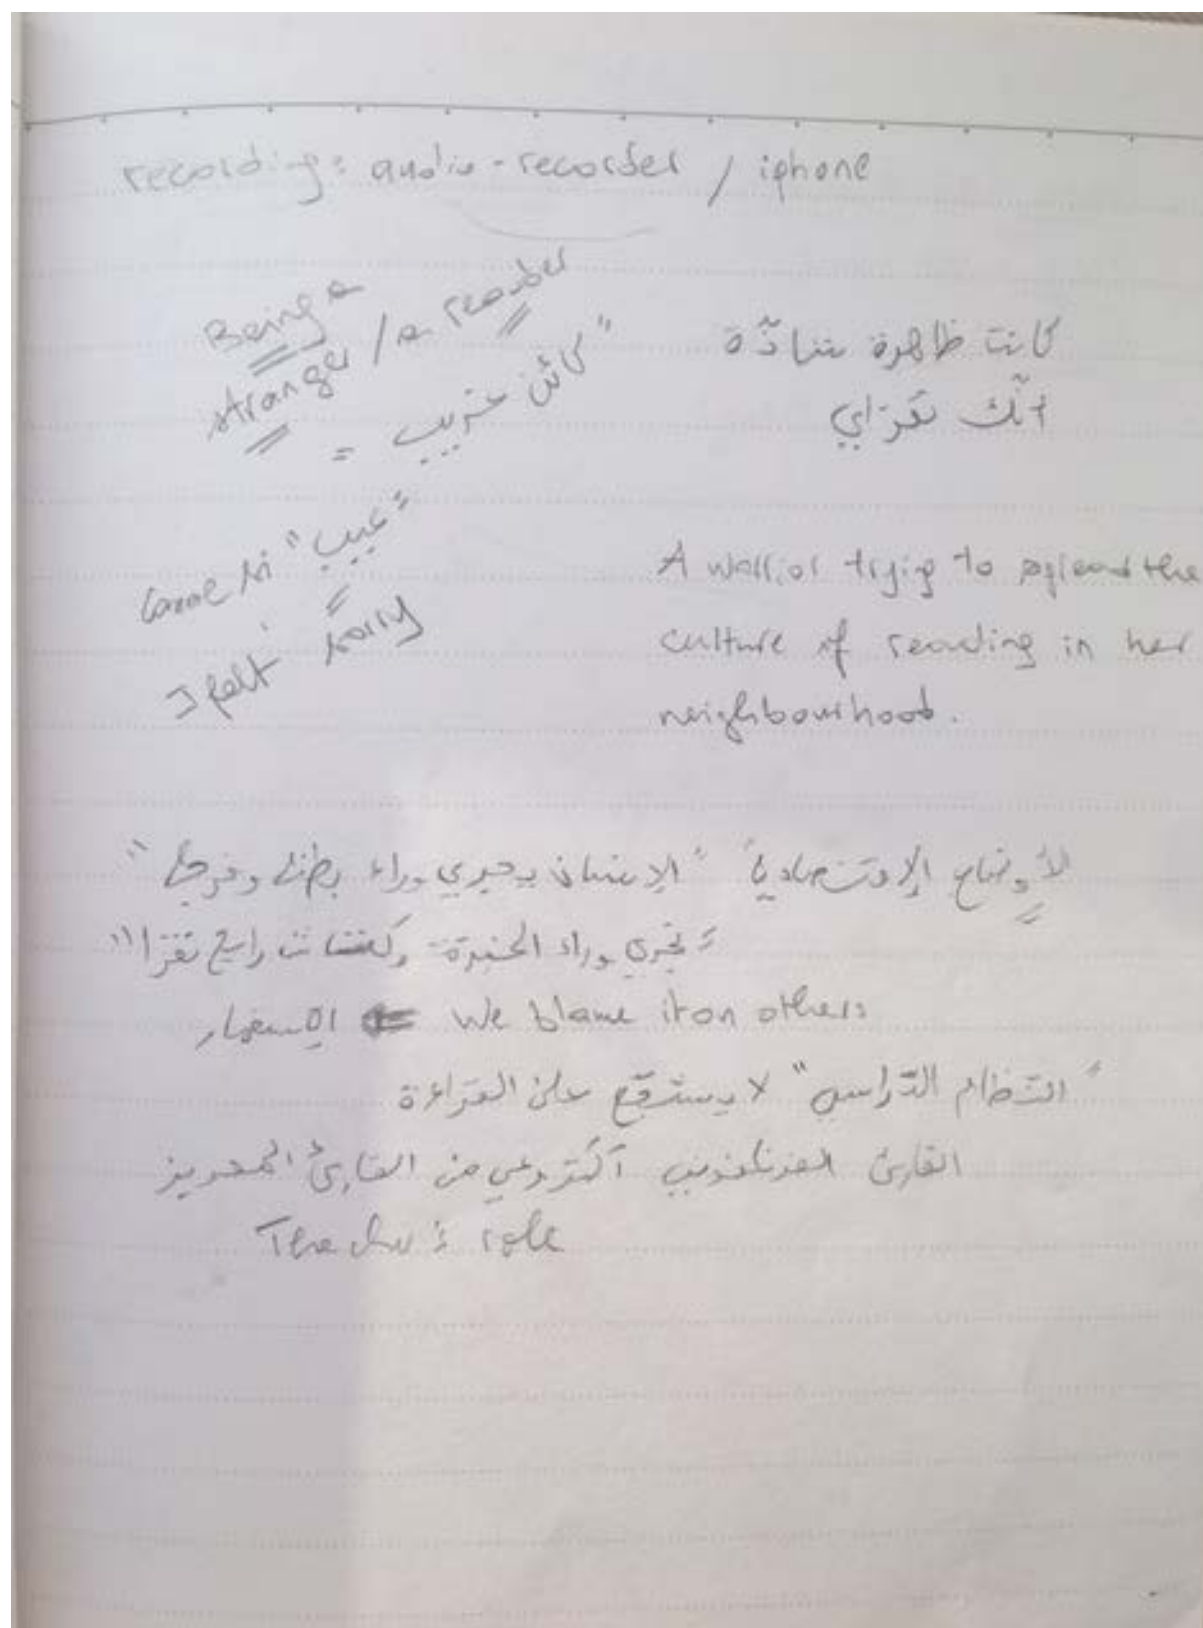 recording: audio-recorder / iphone
Being a
stranger / a reader
"كائن غريب"
"عيب"
I felt sorry
كانت ظاهرة شاذّة
أنّك تقراي
A warrior trying to spread the
culture of reading in her
neighbourhood.
الأوضاع الإقتصادية "الإنسان يجري وراء بطنه وفرجه"
"تجري وراء الخبزة رايح تقرا"
الإستعمار We blame it on others
"النّظام الدّراسي" لا يشجّع على القراءة
القارئ الفرنكفوني أكثر وعي من القارئ المعربز
The role